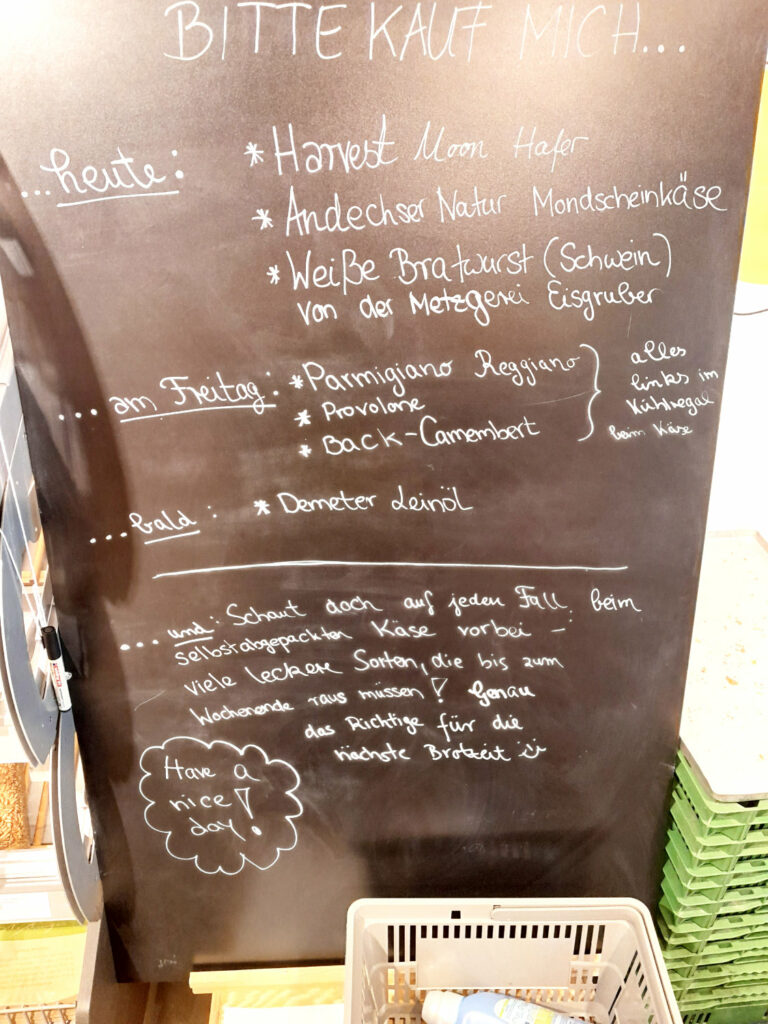 BITTE KAUF MICH...
...heute:
* Harvest Moon Hafer
* Andechser Natur Mondscheinkäse
* Weiße Bratwurst (Schwein)
von der Metzgerei Eisgruber
... am Freitag:
* Parmigiano Reggiano
* Provolone
* Back-Camembert
alles
links im
Kühlregal
beim Käse
...bald:
* Demeter Leinöl
... und: Schaut doch auf jeden Fall beim
selbstabgepackten Käse vorbei –
viele leckere Sorten, die bis zum
Wochenende raus müssen! Genau
das Richtige für die
nächste Brotzeit :)
Have a
nice
day!